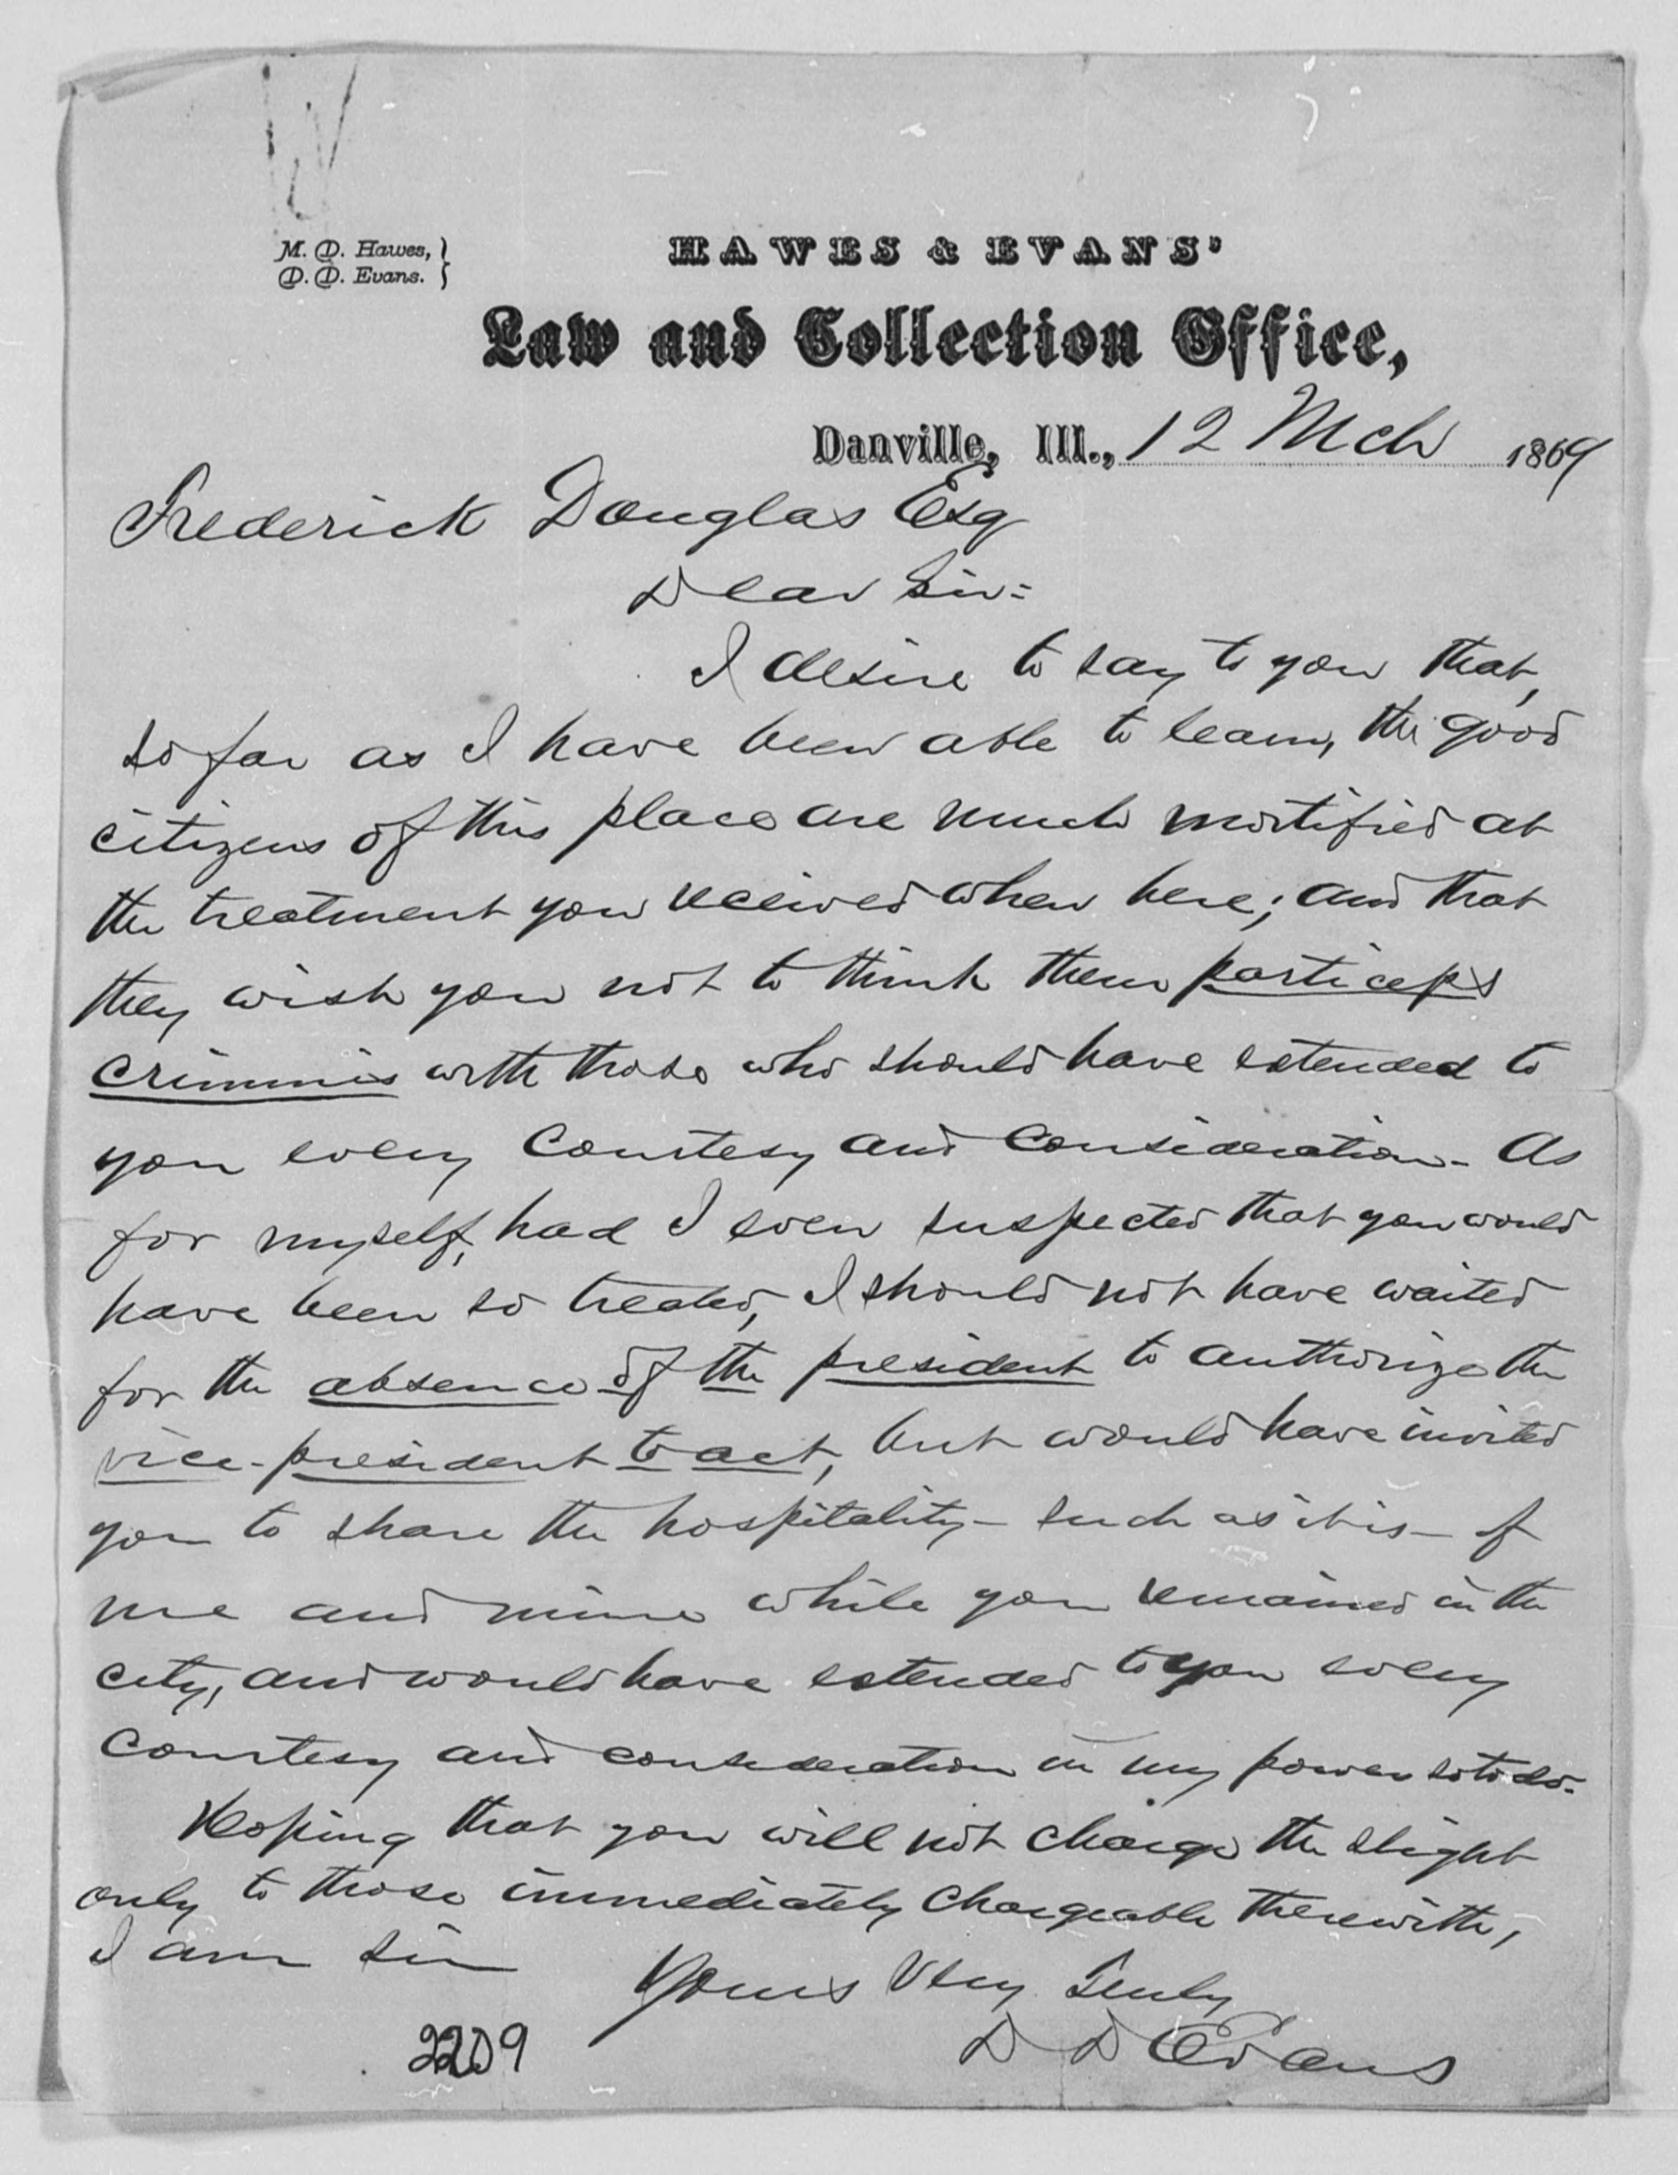 M. D. Hawes,
D. D. Evans.
HAWES & EVANS'
Law and Collection Office,
Danville, Ill., 12 Mch 1869
Frederick Douglas Esq
Dear Sir:
I desire to say to you that,
so far as I have been able to learn, the good
citizens of this place are much mortified at
the treatment you received when here; and that
they wish you not to think them particeps
criminis with those who should have extended to
you every courtesy and consideration - As
for myself, had I even suspected that you would
have been so treated, I should not have waited
for the absence of the president to authorize the
vice-president to act, but would have invited
you to share the hospitality - such as it is - of
me and mine while you remained in the
city, and would have extended to you every
courtesy and consideration in my power so to do.
Hoping that you will not charge the slight
only to those immediately chargeable therewith,
I am sir
Yours Very Truly
D D Evans
2209